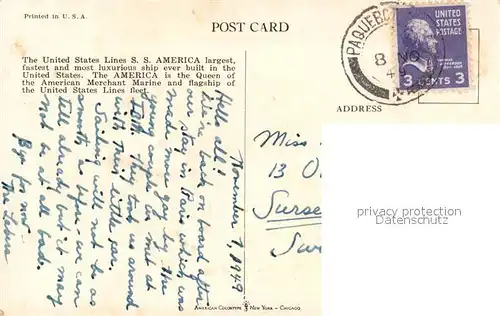 Printed in U. S. A.
POST CARD
The United States Lines S. S. AMERICA largest,
fastest and most luxurious ship ever built in the
United States. The AMERICA is the Queen of
the American Merchant Marine and flagship of
the United States Lines fleet.
November 7, 1949
Hello all!
We're back on board after
our stay in Paris which was
made more gay by the
young couple we met at
They took us around
with their little car.
Sailing will not be as
smooth as before - we can
tell already but it may
not be at all bad.
Bye for now
The
PAQUEBOT
8 NO
49
UNITED
STATES
POSTAGE
3 CENTS 3
ADDRESS
Miss
13 O
Surse
privacy protection
data protection
AMERICAN COLORTYPE NEW YORK - CHICAGO